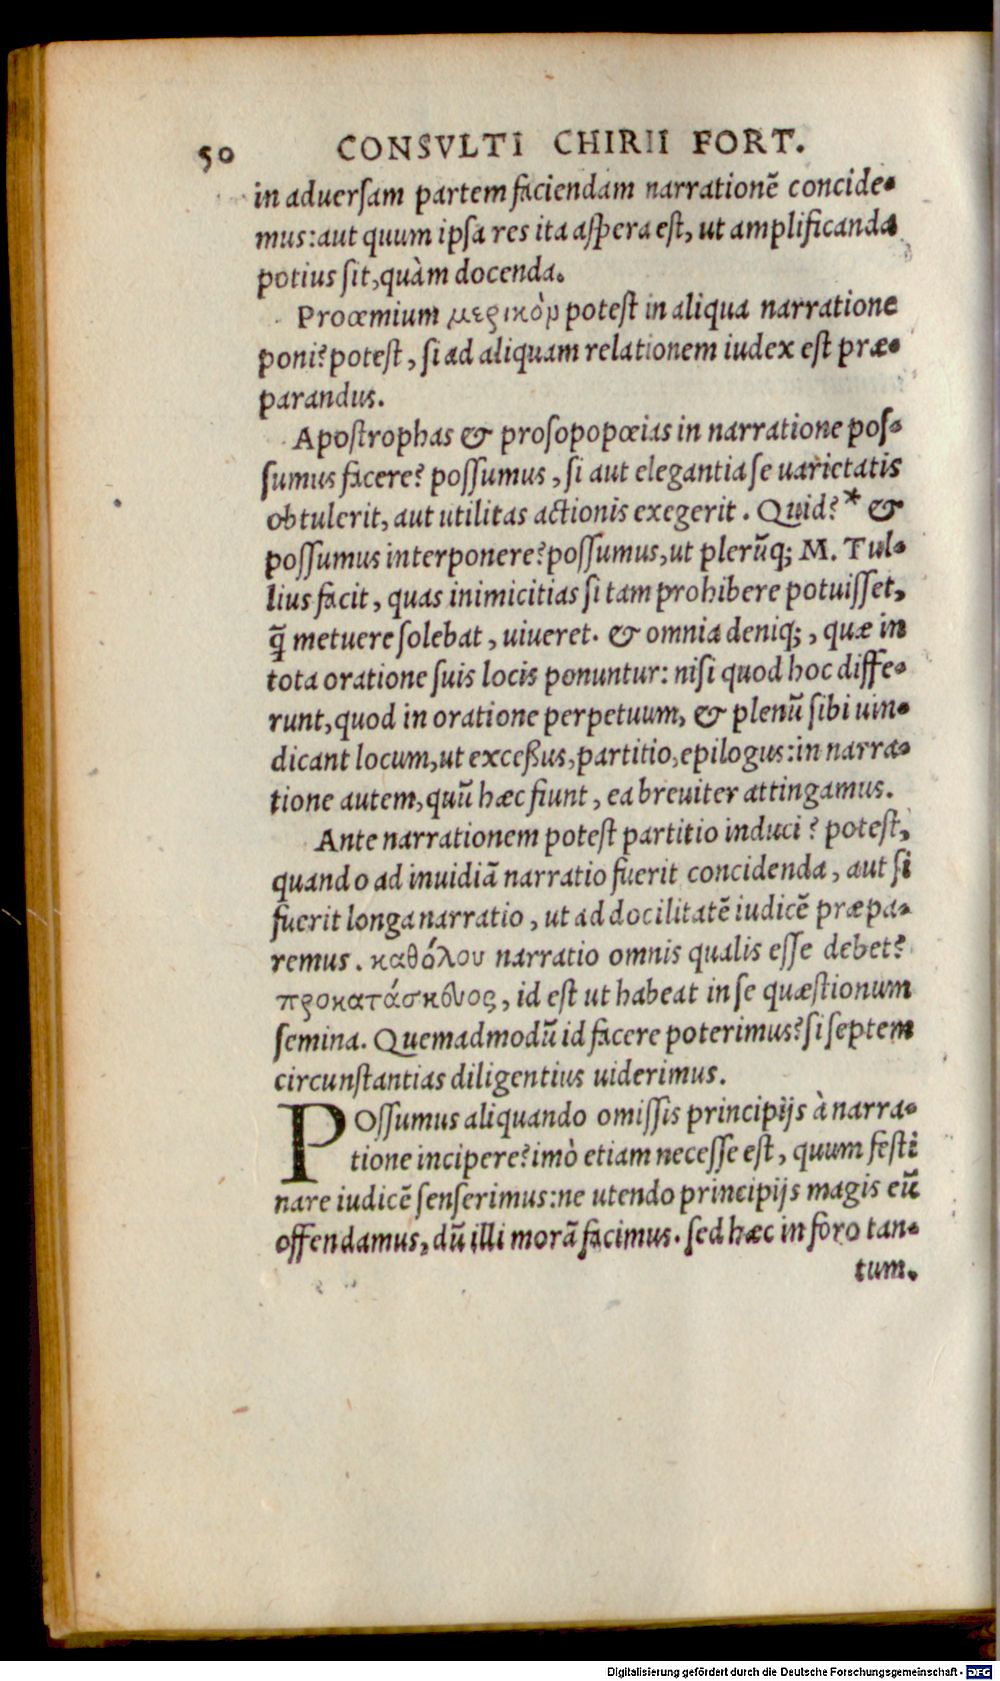 50 CONSVLTI CHIRII FORT.
in aduersam partem faciendam narrationē concide-
mus: aut quum ipsa res ita aspera est, ut amplificanda
potius sit, quàm docenda.
Proœmium μερικὸν potest in aliqua narratione
poni? potest, si ad aliquam relationem iudex est præ-
parandus.
Apostrophas & prosopopœias in narratione pos-
sumus facere? possumus, si aut elegantia se uarietatis
obtulerit, aut utilitas actionis exegerit. Quid? * &
possumus interponere? possumus, ut plerūq; M. Tul-
lius facit, quas inimicitias si tam prohibere potuisset,
q̄ metuere solebat, uiueret. & omnia deniq;, quæ in
tota oratione suis locis ponuntur: nisi quod hoc diffe-
runt, quod in oratione perpetuum, & plenū sibi uin-
dicant locum, ut exceßus, partitio, epilogus: in narra-
tione autem, quū hæc fiunt, ea breuiter attingamus.
Ante narrationem potest partitio induci? potest,
quando ad inuidiā narratio fuerit concidenda, aut si
fuerit longa narratio, ut ad docilitatē iudicē præpa-
remus. καθόλου narratio omnis qualis esse debet?
προκατάσκευος, id est ut habeat in se quæstionum
semina. Quemadmodū id facere poterimus? si septem
circunstantias diligentius uiderimus.
POssumus aliquando omissis principijs à narra-
tione incipere? imò etiam necesse est, quum festi
nare iudicē senserimus: ne utendo principijs magis eū
offendamus, dū illi morā facimus. sed hæc in foro tan-
tum.
Digitalisierung gefördert durch die Deutsche Forschungsgemeinschaft - DFG